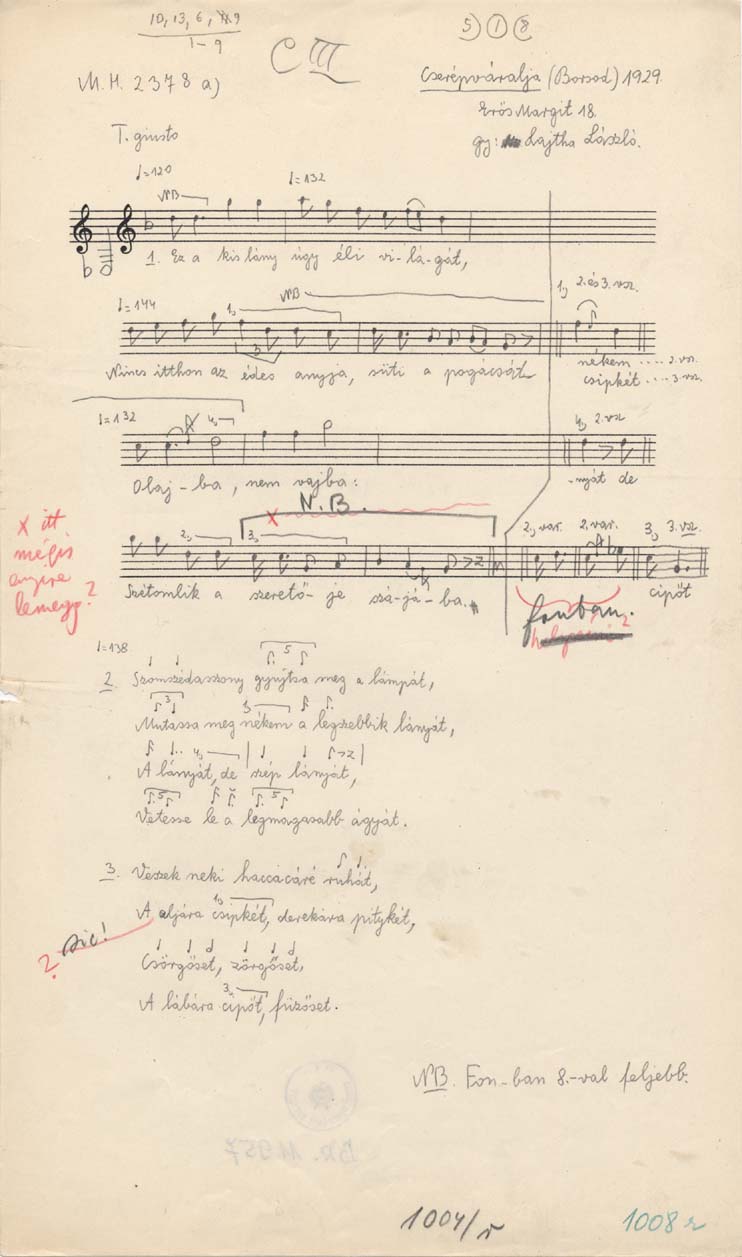 10, 13, 6, 9
1-9
5 1 8
C III
M.H. 2378 a)
Cserépváralja (Borsod) 1929.
Erős Margit 18.
gy: Lajtha László.
T. giusto
♩=120
♩=132
NB
1. Ez a kis lány úgy éli vi-lá-gát,
♩=144
1,
NB
1, 2. és 3. vsz.
3
Nincs itthon az édes anyja, süti a pogácsát
nékem .... 2. vsz.
csipkét .... 3. vsz.
♩=132
4,
4, 2. vsz
Olaj-ba, nem vajba:
-nyát de
N.B.
x itt mégis annyira lemegy?
x
2,
3,
2, var.
2. var.
3, 3. vsz.
Szétomlik a szerető-je szá-já-ba.
cipőt
fonban.
♩=138
5
2. Szomszédasszony gyujtsa meg a lámpát,
3
1,
Mutassa meg nékem a legszebbik lányát,
4,
A lányát, de szép lányát,
5
5
Vetesse le a legmagasabb ágyát.
3. Veszek neki haccacáré ruhát,
1,
A aljára csipkét, derekára pitykét,
? sic!
Csörgőset, zörgőset,
3,
A lábára cipőt, fűzőset.
NB. Fon-ban 8.-val feljebb.
BR. 11957
1004/r
1008 r